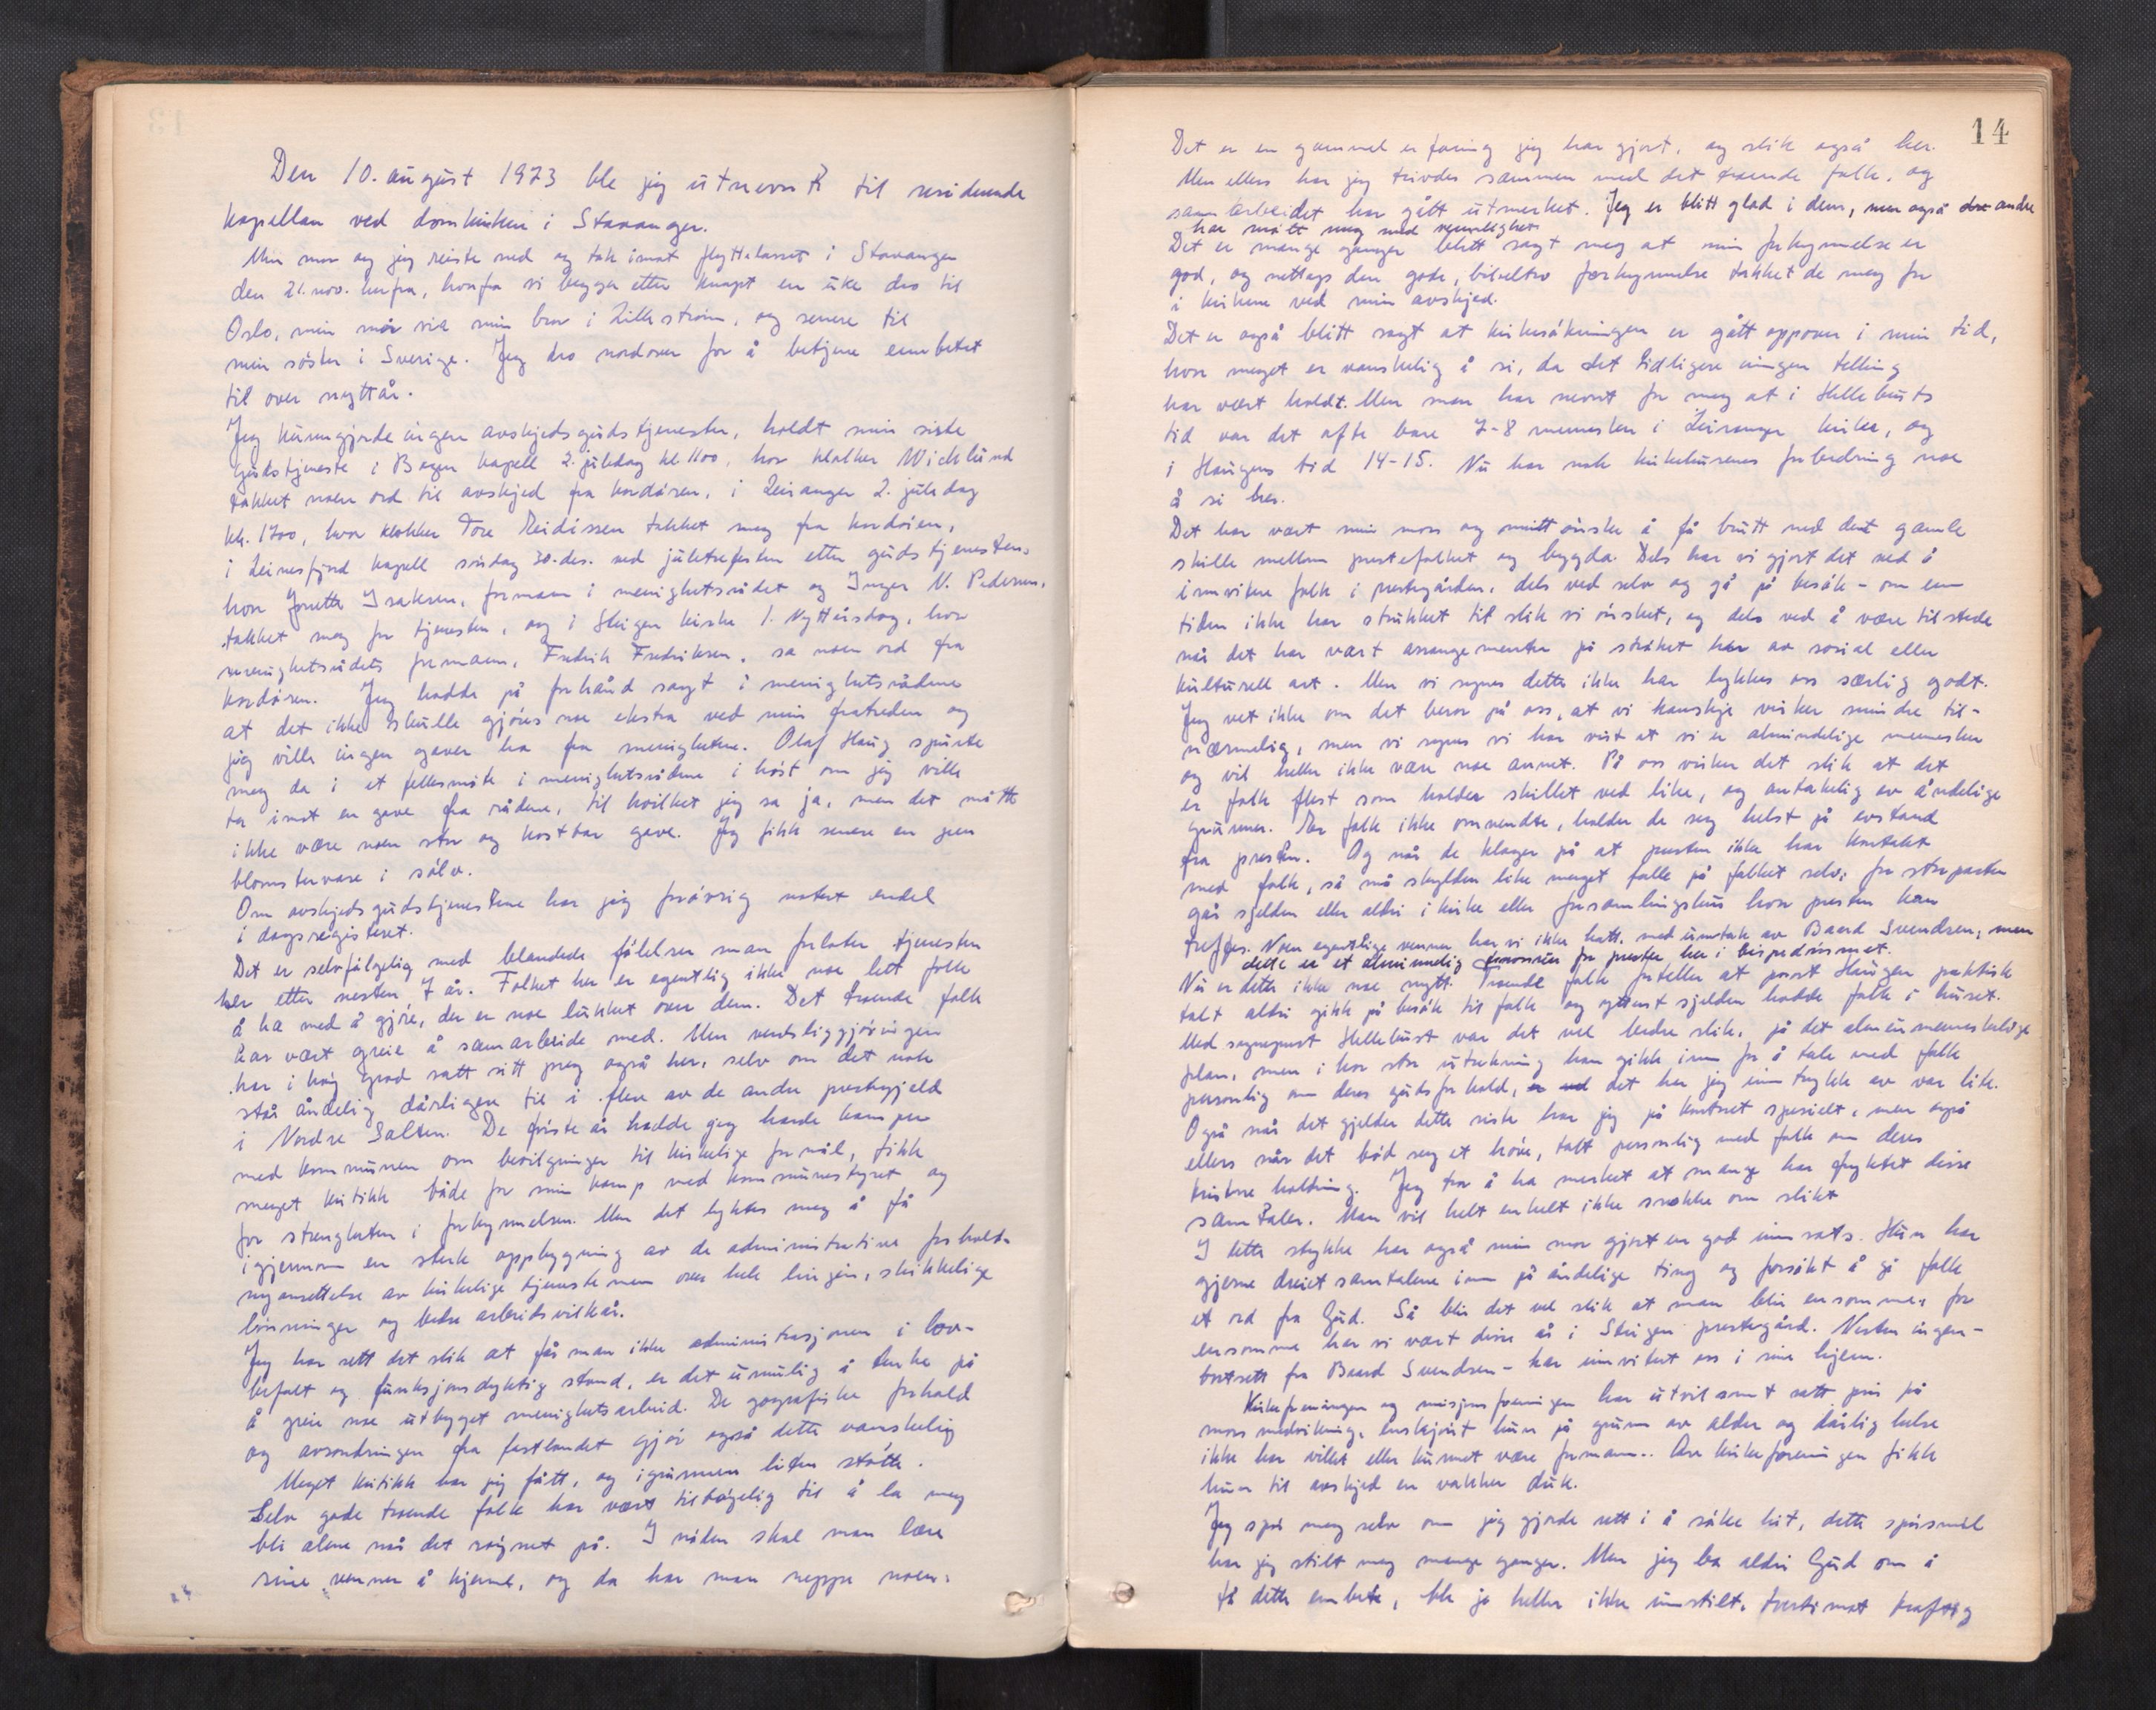 Den 10. august 1973 ble jeg utnevnt til residerende
kapellan ved domkirken i Stavanger.
Min mor og jeg reiste ned og tok imot flyttelasset i Stavanger
den 21. nov. herfra, hvorfra vi begge etter knapt en uke dro til
Oslo, min mor via min bror i Lillestrøm, og senere til
min søster i Sverige. Jeg dro nordover for å betjene embetet
til over nyttår.
Jeg kunngjorde ingen avskjedsgudstjenester, holdt min siste
gudstjeneste i Bogen kapell 2. juledag kl. 1100, hvor klokker Wicklund
takket noen ord til avskjed fra kordøren, i Leiranger 2. juledag
kl. 1700, hvor klokker Tore Reidissen takket meg fra kordøren,
i Leinesfjord kapell søndag 30. des. ved juletrefesten etter gudstjenesten,
hvor Jonette Isaksen, formann i menighetsrådet og Inger N. Pedersen,
takket meg for tjenesten, og i Steigen kirke 1. Nyttårsdag, hvor
menighetsrådets formann, Fredrik Fredriksen, sa noen ord fra
kordøren. Jeg hadde på forhånd sagt i menighetsrådene
at det ikke skulle gjøres noe ekstra ved min fratreden og
jeg ville ingen gaver ha fra menighetene. Olaf Haug spurte
meg da i et fellesmøte i menighetsrådene i høst om jeg ville
ta imot en gave fra rådene, til hvilket jeg sa ja, men det måtte
ikke være noen stor og kostbar gave. Jeg fikk senere en pen
blomstervase i sølv.
Om avskjedsgudstjenestene har jeg forøvrig notert endel
i dagsregisteret.
Det er selvfølgelig med blandede følelser man forlater tjenesten
her etter nesten 7 år. Folket her er egentlig ikke noe lett folk
å ha med å gjøre, der er noe lukket over dem. Det troende folk
har vært greie å samarbeide med. Men verdsliggjøringen
har i høy grad satt sitt preg også her, selv om det nok
står åndelig dårligere til i flere av de andre prestegjeld
i Nordre Salten. De første år hadde jeg harde kamper
med kommunen om bevilgninger til kirkelige formål, fikk
meget kritikk både for min kamp med kommunestyret og
for strengheten i forkynnelsen. Men det lyktes meg å få
igjennom en sterk oppbygning av de administrative forhold,
nyansettelse av kirkelige tjenestemenn over hele linjen, skikkelige
lønninger og bedre arbeidsvilkår.
Jeg har sett det slik at får man ikke administrasjonen i lov-
befalt og funksjonsdyktig stand, er det umulig å tenke på
å greie noe utbygget menighetsarbeid. De geografiske forhold
og avsondringen fra fastlandet gjør også dette vanskelig
Meget kritikk har jeg fått, og igrunnen liten støtte.
Selv gode troende folk har vært tilbøyelig til å la meg
bli alene når det røynet på. I nøden skal man lære
sine venner å kjenne, og da har man neppe noen.
14
Det er en gammel erfaring jeg har gjort, og slik også her.
Men ellers har jeg trivdes sammen med det troende folk, og
samarbeidet har gått utmerket. Jeg er blitt glad i dem, men også de andre
har møtt meg med vennlighet.
Det er mange ganger blitt sagt meg at min forkynnelse er
god, og nettopp den gode, bibeltro forkynnelse takket de meg for
i kirkene ved min avskjed.
Det er også blitt sagt at kirkesøkningen er gått oppover i min tid,
hvor meget er vanskelig å si, da det tidligere ingen telling
har vært holdt. Men man har nevnt for meg at i Hellebusts
tid var det ofte bare 7-8 mennesker i Leiranger kirke, og
i Haugens tid 14-15. Nu har nok kirketurenes forbedring noe
å si her.
Det har vært min mors og mitt ønske å få brutt ned det gamle
skille mellom prestefolket og bygda. Dels har vi gjort det ved å
innvitere folk i prestegården, dels ved selv og gå på besøk - om enn
tiden ikke har strukket til slik vi ønsket, og dels ved å være tilstede
når det har vært arrangementer på strøket her av sosial eller
kulturell art. Men vi synes dette ikke har lykkes oss særlig godt.
Jeg vet ikke om det beror på oss, at vi kanskje virker mindre til-
nærmelig, men vi synes vi har vist at vi er almindelige mennesker
og vil heller ikke være noe annet. På oss virker det slik at det
er folk flest som holder skillet ved like, og antakelig av åndelige
grunner. Er folk ikke omvendte, holder de seg helst på avstand
fra presten. Og når de klager på at presten ikke har kontakt
med folk, så må skylden like meget falle på folket selv, for størparten
går sjelden eller aldri i kirke eller forsamlingshus hvor presten kan
treffes. Noen egentlige venner har vi ikke hatt, med unntak av Baard Svendsen, men
dette er et almindelig for prester her i bispedømmet.
Nu er dette ikke noe nytt. Troende folk forteller at prost Haugen praktisk
talt aldri gikk på besøk til folk og ytterst sjelden hadde folk i huset.
Med sogneprest Hellebust var det vel bedre slik, på det almenmenneskelige
plan, men i hvor stor utstrekning han gikk inn for å tale med folk
personlig om deres gudsforhold, det har jeg inntrykk av var lite.
Også når det gjelder dette siste har jeg på kontoret spesielt, men også
ellers når det bød seg et høve, talt personlig med folk om deres
kristne holdning. Jeg tror å ha merket at mange har fryktet disse
samtaler. Man vil helt enkelt ikke snakke om slikt
I dette stykke har også min mor gjort en god innsats. Hun har
gjerne dreiet samtalene inn på åndelige ting og forsøkt å gi folk
et ord fra Gud. Så blir det vel slik at man blir ensomme, for
ensomme har vi vært disse år i Steigen prestegård. Nesten ingen -
bortsett fra Baard Svendsen - har innvitert oss i sine hjem.
Kirkeforeningen og misjonsforeningen har utvilsomt satt pris på
mors medvirkning, enskjønt hun på grunn av alder og dårlig helse
ikke har villet eller kunnet være formann. Av kirkeforeningen fikk
hun til avskjed en vakker duk.
Jeg spør meg selv om jeg gjorde rett i å søke hit, dette spørsmål
har jeg stilt meg mange ganger. Men jeg ba aldri Gud om å
få dette embete, ble jo heller ikke innstilt, tvertimot kraftig